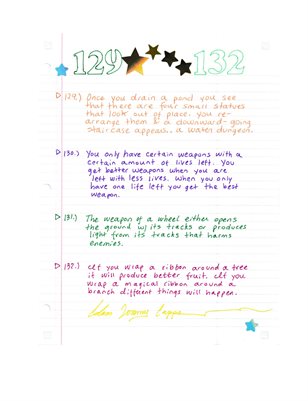 129 132
129.) Once you drain a pond you see
that there are four small statues
that look out of place. you re-
arrange them & a downward-going
staircase appears, a water dungeon.
130.) You only have certain weapons with a
certain amount of lives left. You
get better weapons when you are
left with less lives. When you only
have one life left you get the best
weapon.
131.) The weapon of a wheel either opens
the ground w/ its tracks or produces
light from its tracks that harms
enemies.
132.) If you wrap a ribbon around a tree
it will produce better fruit. If you
wrap a magical ribbon around a
branch different things will happen.